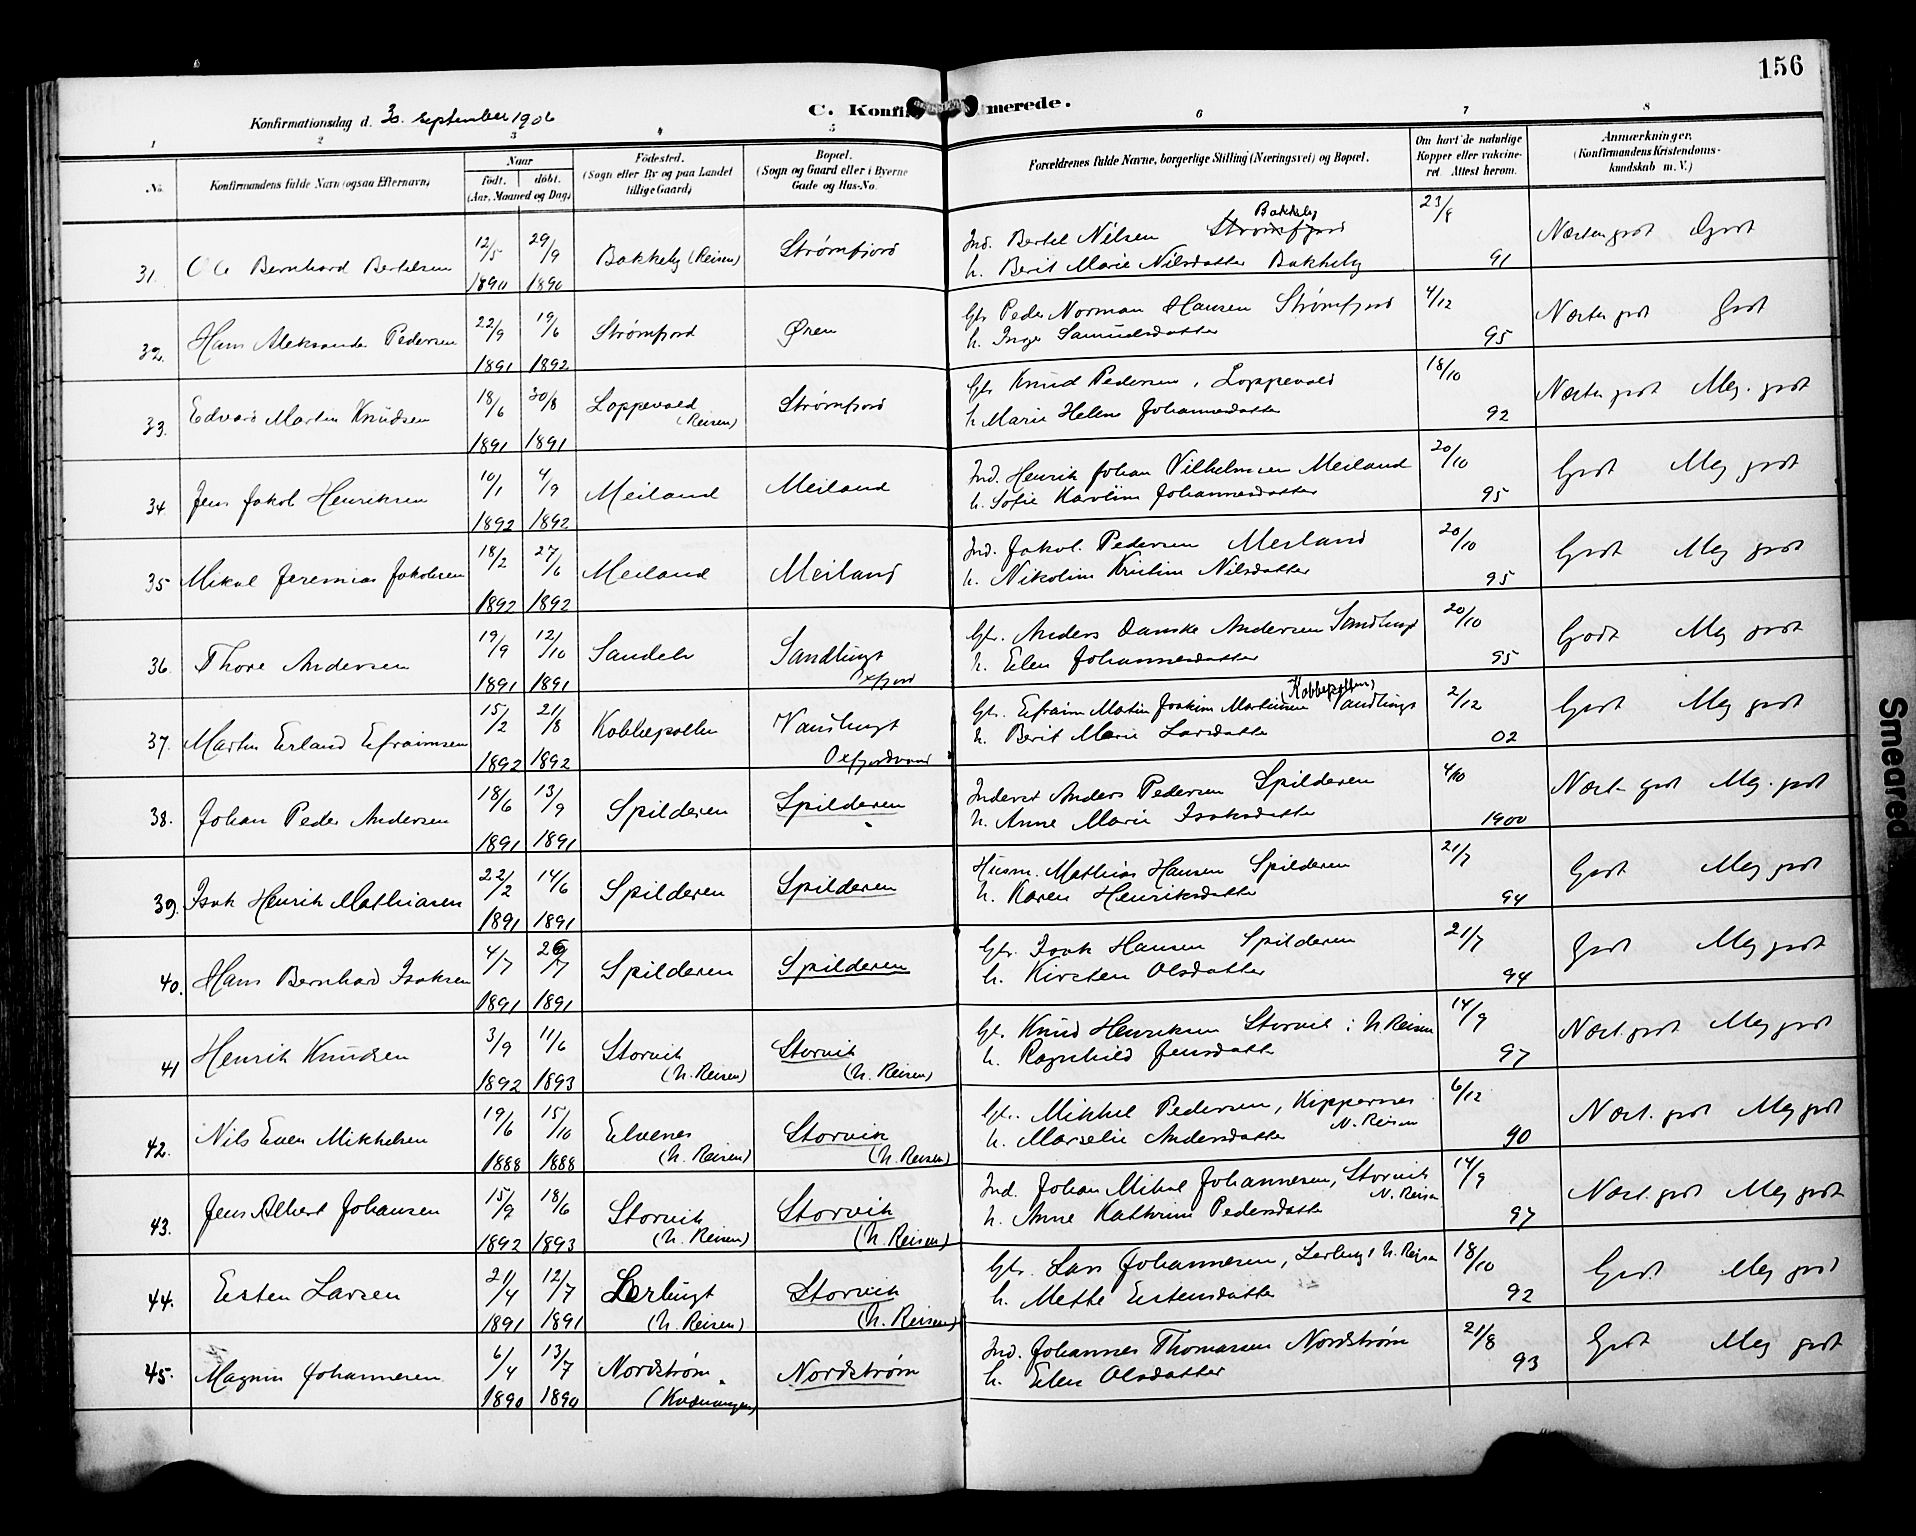 156
C. Konfirmerede.
Konfirmationsdag d. 30. september 1906
1 2 3 4 5 6 7 8
No.
Konfirmandens fulde Navn (ogsaa Efternavn)
Naar
født. døbt.
(Aar, Maaned og Dag)
Fødested.
(Sogn eller By og paa Landet
tillige Gaard)
Bopæl.
(Sogn og Gaard eller i Byerne
Gade og Hus-No.
Forældrenes fulde Navne, borgerlige Stilling (Næringsvei) og Bopæl.
Om havt de naturlige
Kopper eller vakcine-
ret. Attest herom.
Anmærkninger.
(Konfirmandens Kristendoms-
kundskab m. V.)
31. Ole Bernhard Bertelsen 12/5 1890 29/9 1890 Bakkeby (Reisen) Strømfjord
Ind. Bertel Nilsen Strømfjord Bakkeby
h. Berit Marie Nilsdatter Bakkeby
23/8 91 Næsten godt Godt
32. Hans Aleksander Pedersen 22/9 1891 19/6 1892 Strømfjord Øren
Gbr. Peder Norman Hansen Strømfjord
h. Inger Samuelsdatter
4/12 95 Næsten godt Godt
33. Edvard Martin Knudsen 18/6 1891 30/8 1891 Loppevold (Reisen) Strømfjord
Gbr. Knud Pedersen, Loppevold
h. Marie Helene Johannesdatter
18/10 92 Næsten godt Meg. godt
34. Jens Jakob Henriksen 10/1 1892 4/9 1892 Meiland Meiland
Ind. Henrik Johan Vilhelmsen Meiland
h. Sofie Karoline Johannesdatter
20/10 95 Godt Meg godt
35 Mikal Jeremias Jakobsen 18/2 1892 27/6 1892 Meiland Meiland
Ind. Jakob Pedersen Meiland
h. Nikoline Kristine Nilsdatter
20/10 95 Godt Meg godt
36. Thore Andersen 19/9 1891 12/10 1891 Sandelv Sandlungt
Gbr. Anders Danske Andersen
h. Elen Johannesdatter
20/10 95 Godt Meg godt
37. Martin Erland Efraimsen 15/2 1892 21/8 1892 Kobbepollen
Oxfjordvand
Gbr. Efraim Martin Joakim Martinsen (Kobbepollen)
h. Berit Marie Larsdatter
2/12 02 Godt Meg godt
38. Johan Peder Andersen 18/6 1891 13/9 1891 Spilderen Spilderen
Inderst Anders Pedersen Spilderen
h. Anne Marie Isaksdatter
4/10 1900 Næst. godt Meg. godt
39. Isak Henrik Mathiasen 22/2 1891 14/6 1891 Spilderen Spilderen
Husm. Mathias Hansen Spilderen
h. Karen Henriksdatter
21/7 94 Godt Meg godt
40. Hans Bernhard Isaksen 4/7 1891 26/7 1891 Spilderen Spilderen
Gbr. Isak Hansen Spilderen
h. Kirsten Olsdatter
21/7 94 Godt Meg godt
41 Henrik Knudsen 3/9 1892 11/6 1893 Storvik (N. Reisen) Storvik (N. Reisen)
Gbr. Knud Henriksen Storvik i N Reisen
h. Ragnhild Jensdatter
14/9 97 Næst. godt Meg godt
42. Nils Even Mikkelsen 19/6 1888 15/10 1888 Elvenes (N. Reisen) Storvik (N. Reisen)
Gbr. Mikkel Pedersen, Kippernes N. Reisen
h. Marselie Andersdatter
6/12 90 Næst. godt Meg godt
43. Jens Albert Johansen 15/9 1892 18/6 1893 Storvik (N. Reisen) Storvik (N. Reisen)
Ind. Johan Mikal Johannesen, Storvik N. Reisen
h. Anne Kathrine Pedersdatter
14/9 97 Næst. godt Meg godt
44. Eisten Larsen 21/4 1891 12/7 1891 Lerbugt (N. Reisen) Storvik (N. Reisen)
Gbr. Lars Johannesen, Lerbugt N. Reisen
h. Mette Eistensdatter
18/10 92 Godt Meg godt
45. Magnus Johannesen 6/4 1890 13/7 1890 Nordstrøm (Kvænangen) Nordstrøm
Ind. Johannes Thomasen Nordstrøm
h. Elen Olsdatter
21/8 93 Godt Meg godt
Smeared